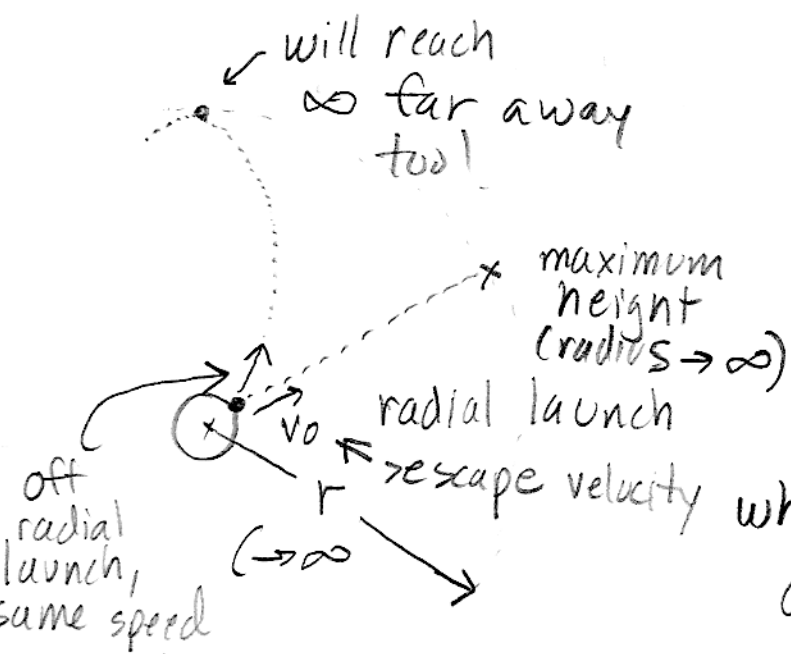 will reach
∞ far away
too!
maximum
height
(radius → ∞)
v₀
radial launch
>escape velocity
wh
r
(→∞
off
radial
launch,
same speed